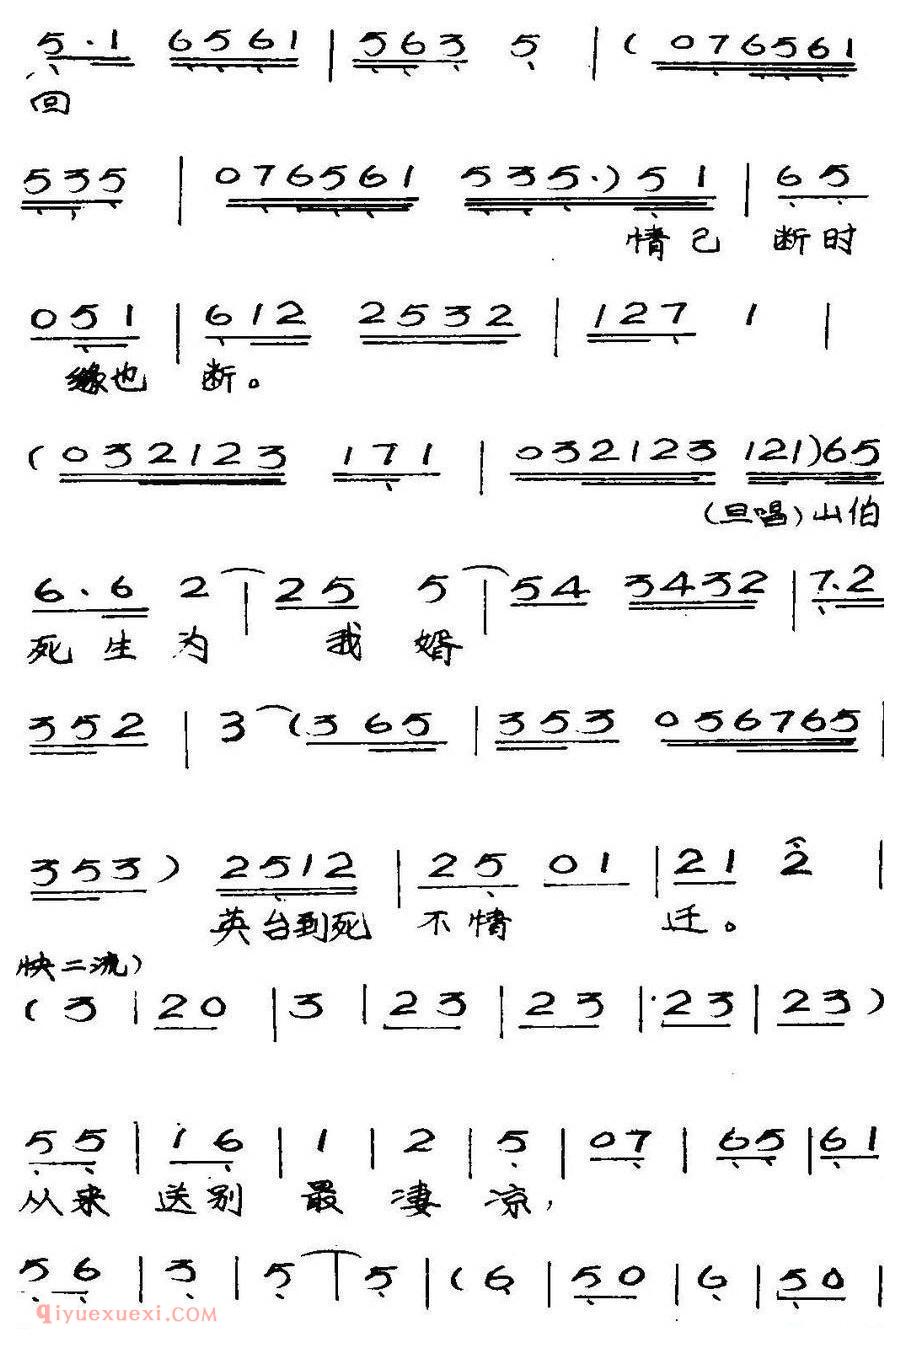 5·1 6561 | 563 5 | (076561
回
535 | 076561 535·) 51 | 65
情已 断时
051 | 612 2532 | 127 1 |
缘也 断。
(032123 171 | 032123 121)65
(旦唱)山伯
6·6 2 | 25 5 | 54 3432 | 7·2
死生为 我婿
352 | 3 (3 65 | 353 056765 |
353) 2512 | 25 01 | 21 2 |
英台到死 不情 迁。
快二流)
(3 | 20 | 3 | 23 | 23 | 23 | 23)
55 | 16 | 1 | 2 | 5 | 07 | 65 | 61
从来 送别 最 凄 凉,
56 | 3 | 5 | 5 | (6 | 50 | 6 | 50 |
qiyuexuexi.com